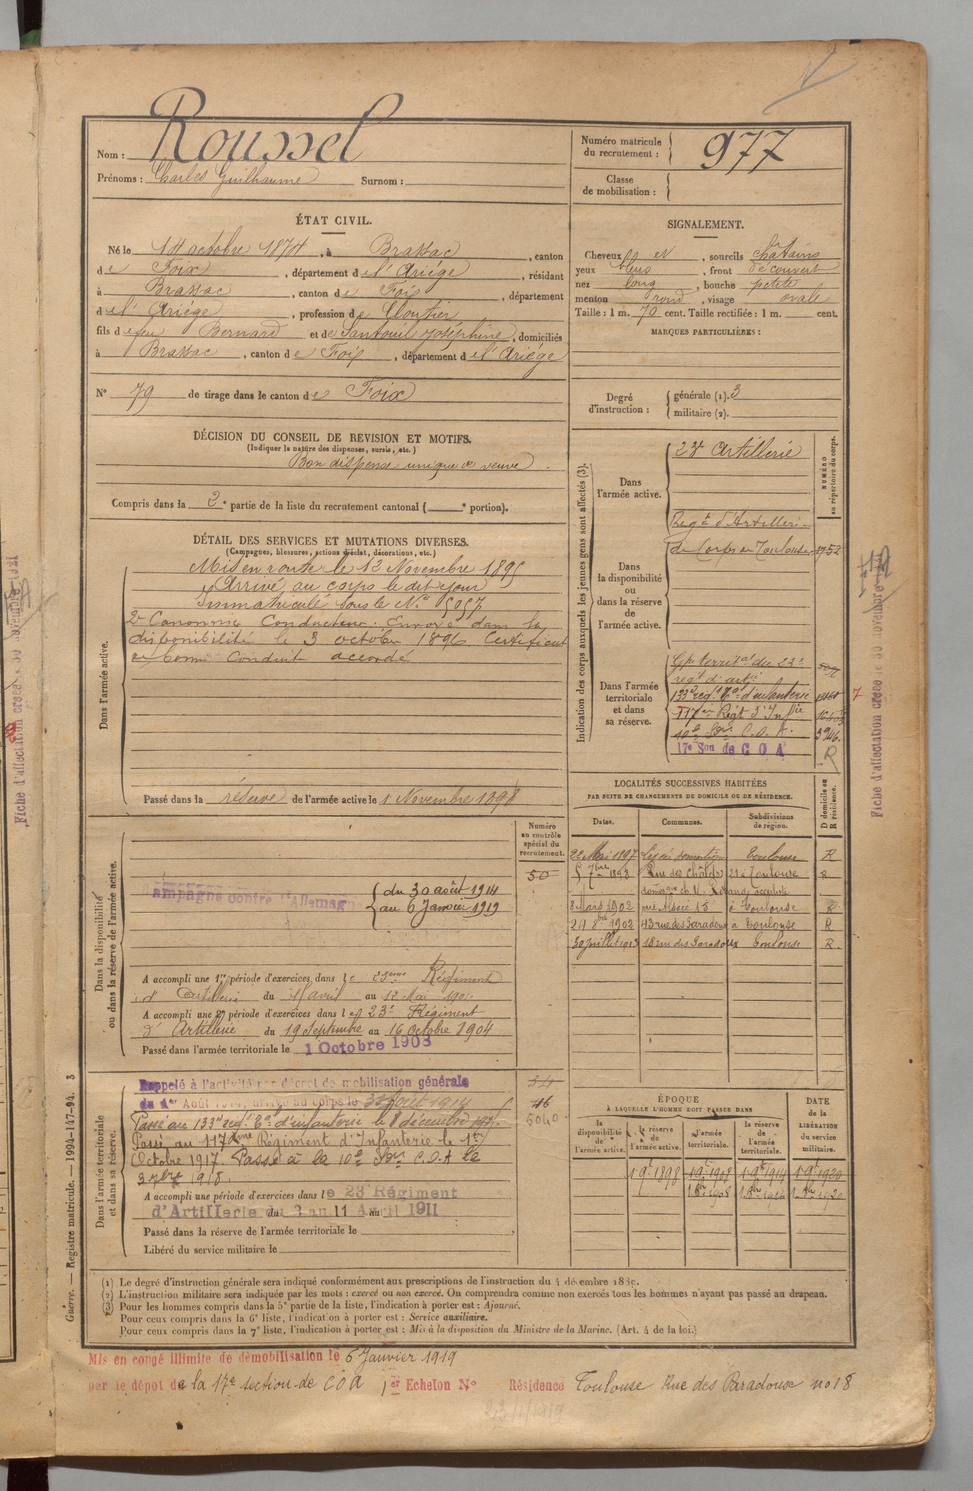 Nom : Roussel
Prénoms : Charles Guilhaume Surnom :
Numéro matricule du recrutement : 977
Classe de mobilisation :
ÉTAT CIVIL.
Né le 14 octobre 1874, à Brassac, canton
de Foix, département de l'Ariège, résidant
à Brassac, canton de Foix, département
de l'Ariège, profession de Cloutier
fils de feu Bernard et de Santouil Joséphine, domiciliés
à Brassac, canton de Foix, département de l'Ariège
N° 79 de tirage dans le canton de Foix
SIGNALEMENT.
Cheveux et, sourcils châtains
yeux bleus, front découvert
nez long, bouche petite
menton rond, visage ovale
Taille : 1 m. 70 cent. Taille rectifiée : 1 m. cent.
MARQUES PARTICULIÈRES :
Degré d'instruction : générale (1). 3
militaire (2).
DÉCISION DU CONSEIL DE REVISION ET MOTIFS.
(Indiquer la nature des dispenses, sursis, etc.)
Bon dispensé unique de veuve.
Compris dans la 2e partie de la liste du recrutement cantonal ( e portion).
DÉTAIL DES SERVICES ET MUTATIONS DIVERSES.
(Campagnes, blessures, actions d'éclat, décorations, etc.)
Dans l'armée active.
Mis en route le 13 Novembre 1895
Arrivé au corps le dit jour
Immatriculé sous le No 5057
2e Canonnier Conducteur. Envoyé dans la
disponibilité le 3 octobre 1896 Certificat
de bonne Conduite accordé
Passé dans la réserve de l'armée active le 1 Novembre 1898
Indication des corps auxquels les jeunes gens sont affectés (3).
NUMÉRO au répertoire du corps.
Dans l'armée active.
23e Artillerie
Dans la disponibilité ou dans la réserve de l'armée active.
Regt d'Artillerie
de Corps à Toulouse 1752
Dans l'armée territoriale et dans sa réserve.
Gpe territal du 23e
regt d'artie
133e regt Tal d'infanterie
117e Regt d'Infie
10e Son C.O.A. 3946
17e Son de COA R
LOCALITÉS SUCCESSIVES HABITÉES
PAR SUITE DE CHANGEMENTS DE DOMICILE OU DE RÉSIDENCE.
Dates. Communes. Subdivisions de région. D domicile ou R résidence.
22 Mai 1897 Toulouse R
5 7bre 1898 Rue des 21 à Toulouse R
8 Mars 1902 15 à Toulouse R
24 8bre 1902 43 rue des Paradoux à Toulouse R
30 juillet 1913 18 rue des Paradoux Toulouse R
Dans la disponibilité ou dans la réserve de l'armée active.
Numéro au contrôle spécial du recrutement.
50
Campagne contre l'Allemagne du 30 août 1914
au 6 Janvier 1919
A accompli une 1re période d'exercices dans le 23ème Régiment
d'Artillerie du avril au 12 Mai 1901
A accompli une 2e période d'exercices dans le 23e Régiment
d'Artillerie du 19 Septembre au 16 octobre 1904
Passé dans l'armée territoriale le 1 Octobre 1908
Dans l'armée territoriale et dans sa réserve.
Rappelé à l'activité par décret de mobilisation générale
du 1er Août 1914, arrivé au corps le août 1914
46
5040
Passé au 133e reg. Tal d'infanterie le 8 décembre
Passé au 117ème Régiment d'Infanterie le 1er
Octobre 1917. Passé à la 10e Son C.O.A le
3 7bre 1918.
A accompli une période d'exercices dans le 23 Régiment
d'Artillerie du 3 au 11 Avril 1911
Passé dans la réserve de l'armée territoriale le
Libéré du service militaire le
ÉPOQUE
À LAQUELLE L'HOMME DOIT PASSER DANS
la disponibilité de l'armée active. la réserve de l'armée active. l'armée territoriale. la réserve de l'armée territoriale.
DATE de la LIBÉRATION du service militaire.
1 9bre 1898 1 9bre 1908 1 9bre 1914 1 9bre 1920
1 8bre 1908 1 8bre 1914 1 8bre 1920
(1) Le degré d'instruction générale sera indiqué conformément aux prescriptions de l'instruction du 4 décembre 1889.
(2) L'instruction militaire sera indiquée par les mots : exercé ou non exercé. On comprendra comme non exercés tous les hommes n'ayant pas passé au drapeau.
(3) Pour les hommes compris dans la 5e partie de la liste, l'indication à porter est : Ajourné.
Pour ceux compris dans la 6e liste, l'indication à porter est : Service auxiliaire.
Pour ceux compris dans la 7e liste, l'indication à porter est : Mis à la disposition du Ministre de la Marine. (Art. 4 de la loi.)
Mis en congé illimité de démobilisation le 6 Janvier 1919
par le dépot de la 17e section de COA 1er Echelon No Résidence Toulouse Rue des Paradoux no 18
Guerre. — Registre matricule. — 1994-147-94. 3
Fiche d'affectation créée le 30 novembre 1921
Fiche d'affectation créée le 30 novembre